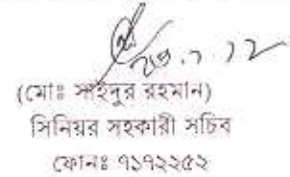 ২৩.১.১২
(মোঃ সাইদুর রহমান)
সিনিয়র সহকারী সচিব
ফোনঃ ৭১৭২২৫২